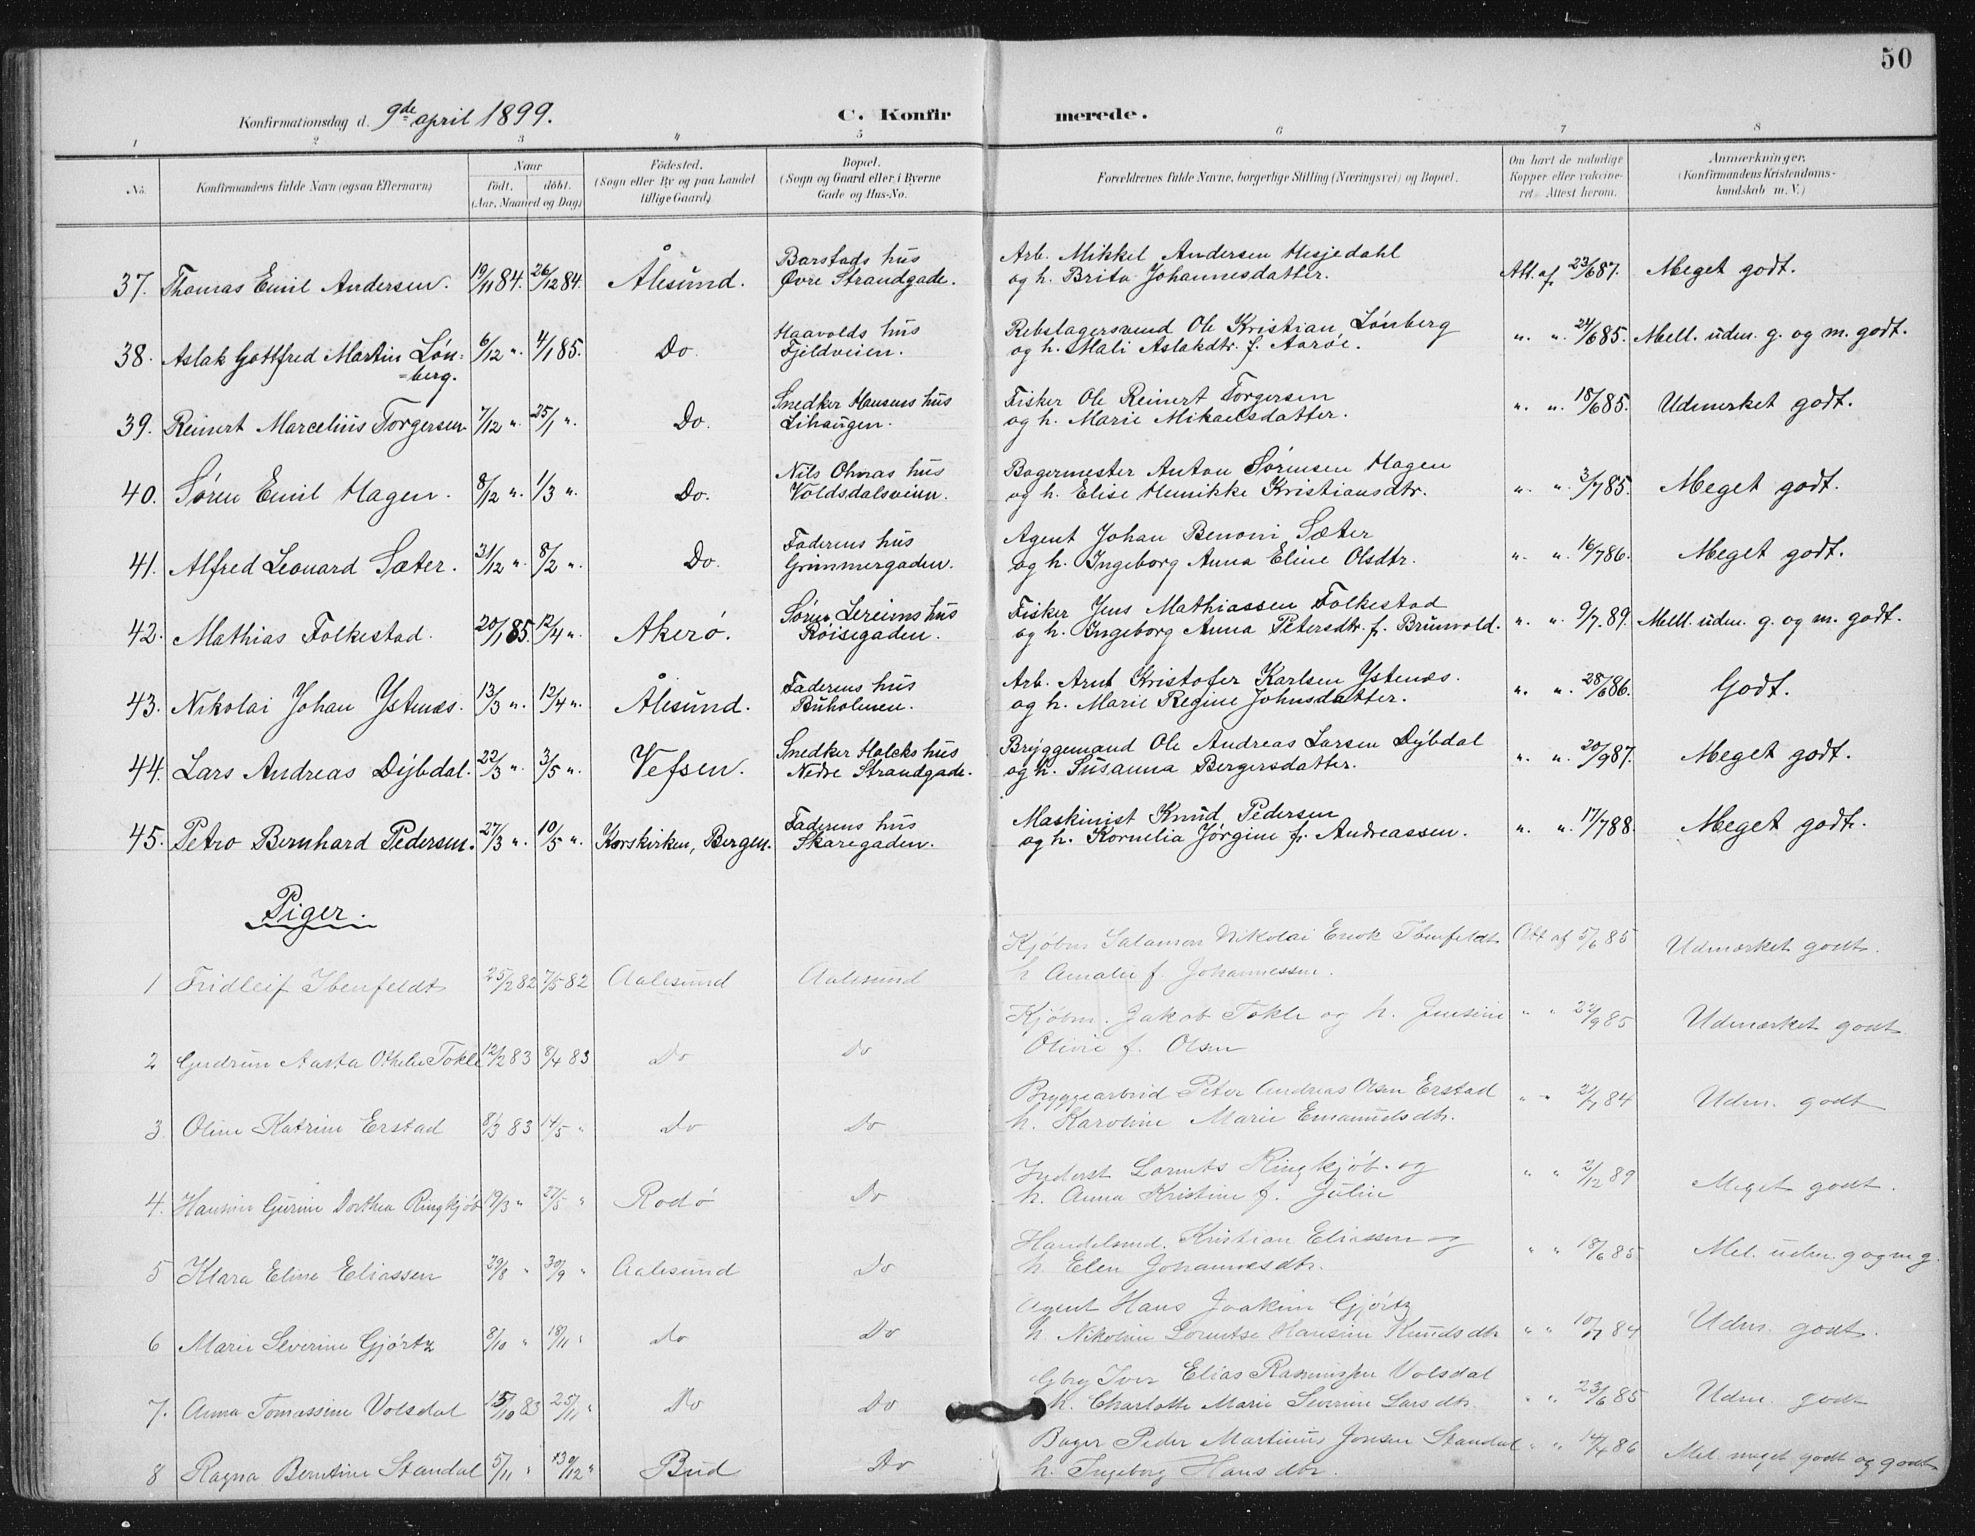 50
Konfirmationsdag d. 9de april 1899.
C. Konfirmerede.
1 2 3 4 5 6 7 8
No.
Konfirmandens fulde Navn (ogsaa Efternavn)
Naar født. døbt. (Aar, Maaned og Dag)
Fødested. (Sogn eller By og paa Landet tillige Gaard)
Bopæl. (Sogn og Gaard eller i Byerne Gade og Hus-No.
Forældrenes fulde Navne, borgerlige Stilling (Næringsvei) og Bopæl.
Om havt de naturlige Kopper eller vakcineret. Attest herom.
Anmærkninger. (Konfirmandens Kristendomskundskab m. V.)
37. Thomas Emil Andersen. 19/11 84. 26/12 84. Ålesund. Barstads hus Øvre Strandgade. Arb. Mikkel Andersen Hesjedahl og h. Brita Johannesdatter. Att. af 23/6 87. Meget godt.
38. Aslak Gottfred Martin Lønberg. 6/12 „ 4/1 85. Do. Haavolds hus Fjeldveien. Rebslagersvend Ole Kristian Lønberg og h. Mali Aslakdtr. f. Aarøe. „ „ 24/6 85. Mell. udm. g. og m. godt.
39. Reinert Marcelius Torgersen 7/12 „ 25/1 „ Do. Snedker Hansens hus Lihaugen. Fisker Ole Reinert Torgersen og h. Marie Mikaelsdatter. „ „ 18/6 85. Udmerket godt.
40. Søren Emil Hagen. 8/12 „ 1/3 „ Do. Nils Ohras hus Voldsdalsveien. Bagermester Anton Sørensen Hagen og h. Elise Henrikke Kristiansdtr. „ „ 3/7 85. Meget godt.
41. Alfred Leonard Sæter. 31/12 „ 8/2 „ Do. Faderens hus Grimmergaden. Agent Johan Benoni Sæter og h. Ingeborg Anna Eline Olsdtr. „ „ 16/7 86. Meget godt.
42. Mathias Folkestad. 20/1 85. 12/4 „ Akerø. Søren Lereims hus Røisegaden. Fisker Jens Mathiassen Folkestad og h. Ingeborg Anna Petersdtr. f. Brunvold. „ „ 9/7 89. Mell. udm. g. og m. godt.
43. Nikolai Johan Ystenæs. 13/3 „ 12/4 „ Ålesund. Faderens hus Buholmen. Arb. Arnt Kristofer Karlsen Ystenæs. og h. Marie Regine Johnsdatter. „ „ 28/6 86. Godt.
44. Lars Andreas Dybdal. 22/3 „ 3/5 „ Vefsen. Snedker Holcks hus Nedre Strandgade. Bryggemand Ole Andreas Larsen Dybdal og h. Susanna Bergersdatter. „ „ 20/9 87. Meget godt.
45. Petro Bernhard Pedersen. 27/3 „ 10/5 „ Korskirken, Bergen. Faderens hus Skaregaden. Maskinist Knud Pedersen og h. Kornelia Jørgine f. Andreassen. „ „ 17/7 88. Meget godt.
Piger.
1 Fridleif Ibenfeldt 25/2 82 7/5 82 Aalesund Aalesund Kjøbm Salamon Nikolai Enok Ibenfeldt h. Amalie f. Johannessen. Att af 5/6 85 Udmærket godt.
2 Gudrun Aasta Othelie Tokle 12/2 83 8/4 83 Do Do Kjøbm. Jakob Tokle og h. Jensine Olivie f. Olsen „ „ 22/9 85 Udmærket godt
3 Oline Katrine Erstad 8/3 83 14/5 „ Do Do Bryggearbeid Peter Andreas Olsen Erstad h. Karoline Marie Emanuelsdtr. „ „ 21/7 84 Udm. godt
4. Hansine Gurine Dorthea Ringkjøb 19/3 „ 27/5 „ Rodø Do Inderst Lorents Ringkjøb. og h. Anna Kristine f. Juline „ „ 2/12 89 Meget godt.
5 Klara Eline Eliassen 29/8 „ 30/9 „ Aalesund Do Handelsmd. Kristian Eliassen og h. Elen Johannesdtr. „ „ 18/6 85 Mel. udm. g og m g.
6 Marie Severine Gjørtz 8/10 „ 18/11 „ do Do Agent Hans Joakim Gjørtz h. Nikoline Lorentse Hansine Knudsdtr „ „ 10/7 84 Udm. godt.
7. Anna Tomassine Volsdal 15/10 83 25/11 „ Do Do Iver Elias Rasmussen Volsdal h. Charlotte Marie Severine Larsdtr. „ „ 23/6 85 Udm. godt
8 Ragna Berntine Standal 5/11 „ 130/12 „ Bud Do Bager Peder Martinus Jonsen Standal h. Ingeborg Hansdtr. „ „ 14/4 86 Mel. meget godt og godt